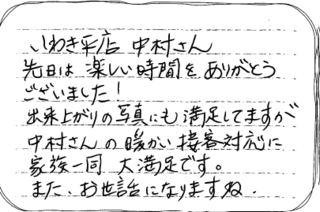 いわき平店 中村さん
先日は楽しい時間をありがとう
ございました!
出来上がりの写真にも満足してますが
中村さんの暖かい接客対応に
家族一同 大満足です。
また、お世話になりますね.